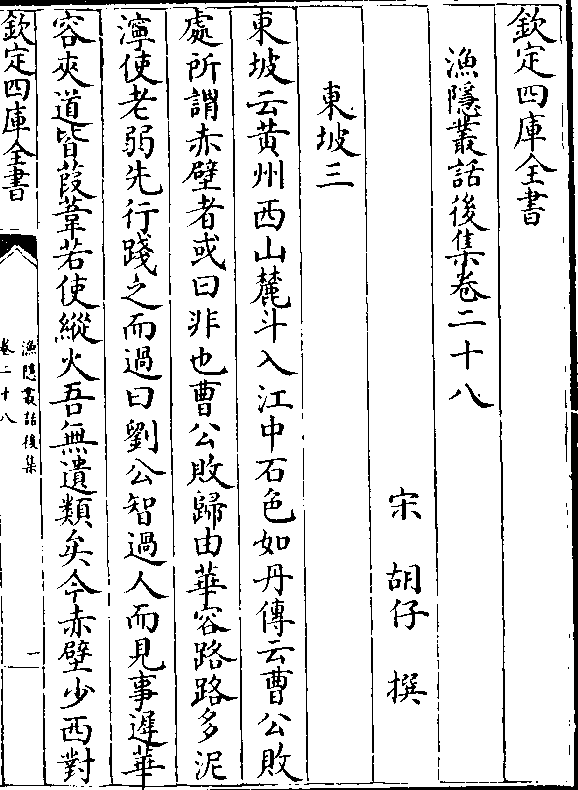 欽定四庫全書
漁隱叢話後集卷二十八
宋 胡仔 撰
東坡三
東坡云黄州西山麓斗入江中石色如丹傳云曹公敗
處所謂赤壁者或曰非也曹公敗歸由華容路路多泥
濘使老弱先行踐之而過曰劉公智過人而見事遲華
容夾道皆葭葦若使縱火吾無遺類矣今赤壁少西對
欽定四庫全書
漁隱叢話後集
卷二十八
一